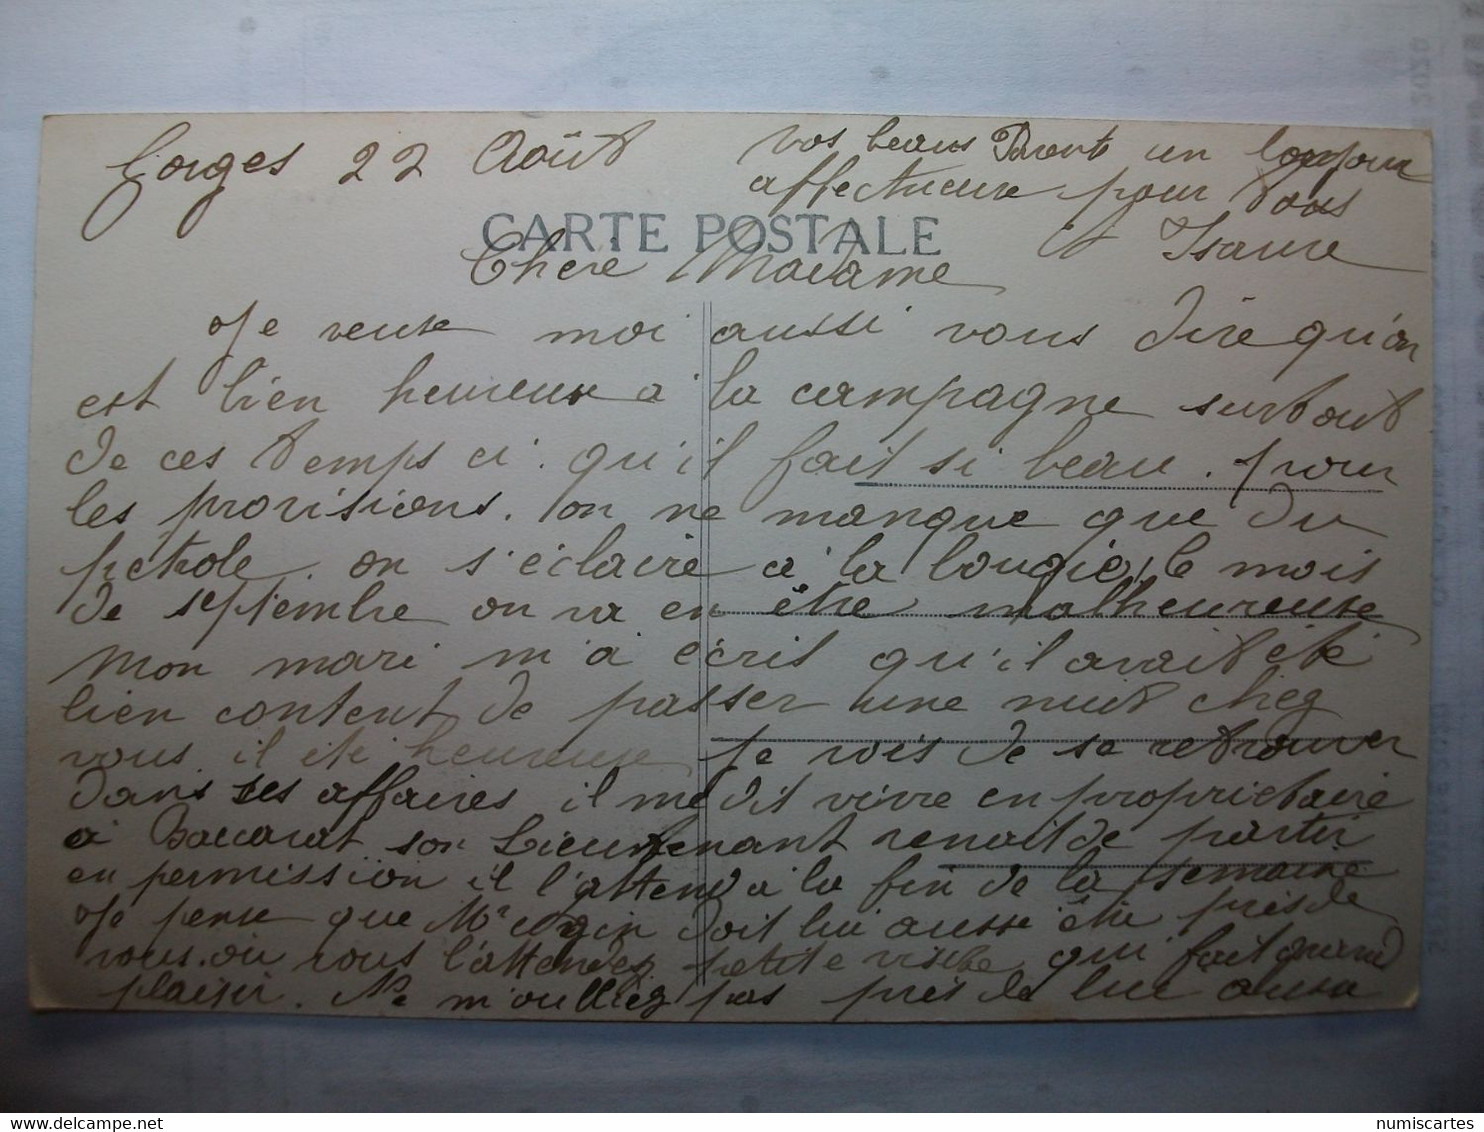 Gorges 22 Août
CARTE POSTALE
Chere Madame
Je veux moi aussi vous dire qu'on
est bien heureux a la campagne surtout
de ces temps ci. qu'il fait si beau. pour
les provisions. on ne manque que du
petrole. on s'éclaire a la bougie, le mois
de septembre on va en être malheureuse
Mon mari m'a écris qu'il avait été
bien content de passer une nuit chez
vous il été heureuse je vois de se retrouver
dans ses affaires il me dit vivre en proprietaire
a Baccarat son Lieutenant venait de partir
en permission il l'attend a la fin de la semaine
Je pense que Mr doit lui aussi être près de
vous. ou vous l'attendez petite visite qui fait grand
plaisir. Ne m'oubliez pas près de lui aussi
vos beaux Parents un bonjour
affectueux pour vous
et Isaure
numiscartes